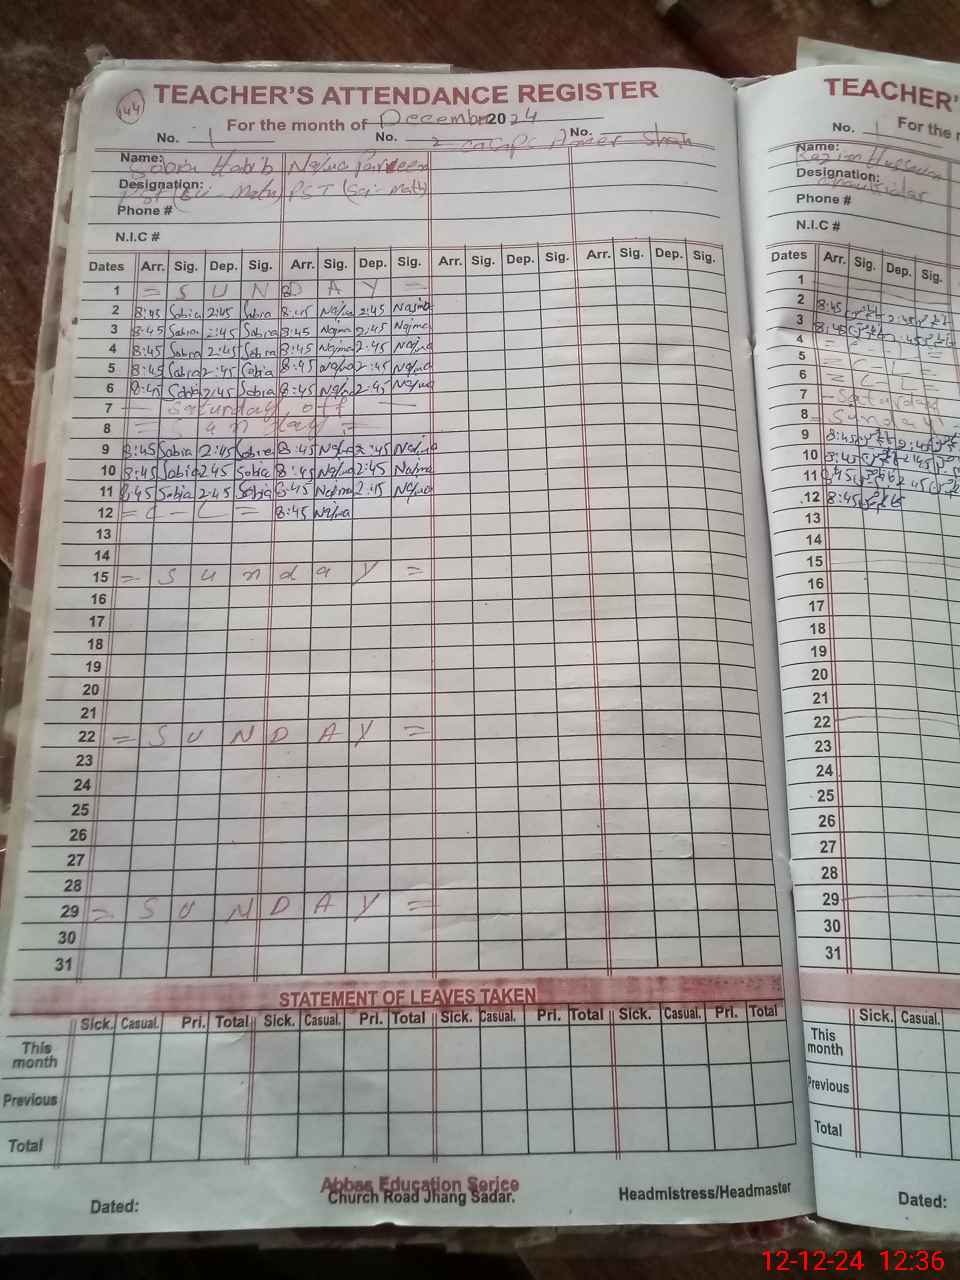 144
TEACHER'S ATTENDANCE REGISTER
For the month of December 2024
No. 1 No. 2 No.
Name: Sabia Habib Najma Parveen
Designation: PST (Sci-Math) PST (Sci-Math)
Phone #
N.I.C #
Dates Arr. Sig. Dep. Sig. Arr. Sig. Dep. Sig. Arr. Sig. Dep. Sig. Arr. Sig. Dep. Sig.
1 = S U N D A Y =
2 8:45 Sabia 2:45 Sabia 8:45 Najma 2:45 Najma
3 8:45 Sabia 2:45 Sabia 8:45 Najma 2:45 Najma
4 8:45 Sabia 2:45 Sabia 8:45 Najma 2:45 Najma
5 8:45 Sabia 2:45 Sabia 8:45 Najma 2:45 Najma
6 8:45 Sabia 2:45 Sabia 8:45 Najma 2:45 Najma
7 — Saturday, off —
8 = Sunday =
9 8:45 Sabia 2:45 Sabia 8:45 Najma 2:45 Najma
10 8:45 Sabia 2:45 Sabia 8:45 Najma 2:45 Najma
11 8:45 Sabia 2:45 Sabia 8:45 Najma 2:45 Najma
12 = C - L = 8:45 Najma
13
14
15 = S u n d a y =
16
17
18
19
20
21
22 = S U N D A Y =
23
24
25
26
27
28
29 = S U N D A Y =
30
31
STATEMENT OF LEAVES TAKEN
Sick. Casual. Pri. Total Sick. Casual. Pri. Total Sick. Casual. Pri. Total Sick. Casual. Pri. Total
This month
Previous
Total
Abbas Education Serice
Church Road Jhang Sadar.
Dated: Headmistress/Headmaster
TEACHER'
No. 1 For the
Name:
Designation:
Phone #
N.I.C #
Dates Arr. Sig. Dep. Sig.
1
2 8:45 2:45
3 8:45 2:45
4 = C - L =
5 = C - L =
6 = C - L =
7 - Saturday
8 - Sunday
9 8:45 2:45
10 8:45 2:45
11 8:45 2:45
12 8:45
13
14
15
16
17
18
19
20
21
22
23
24
25
26
27
28
29
30
31
Sick. Casual.
This month
Previous
Total
Dated:
12-12-24 12:36